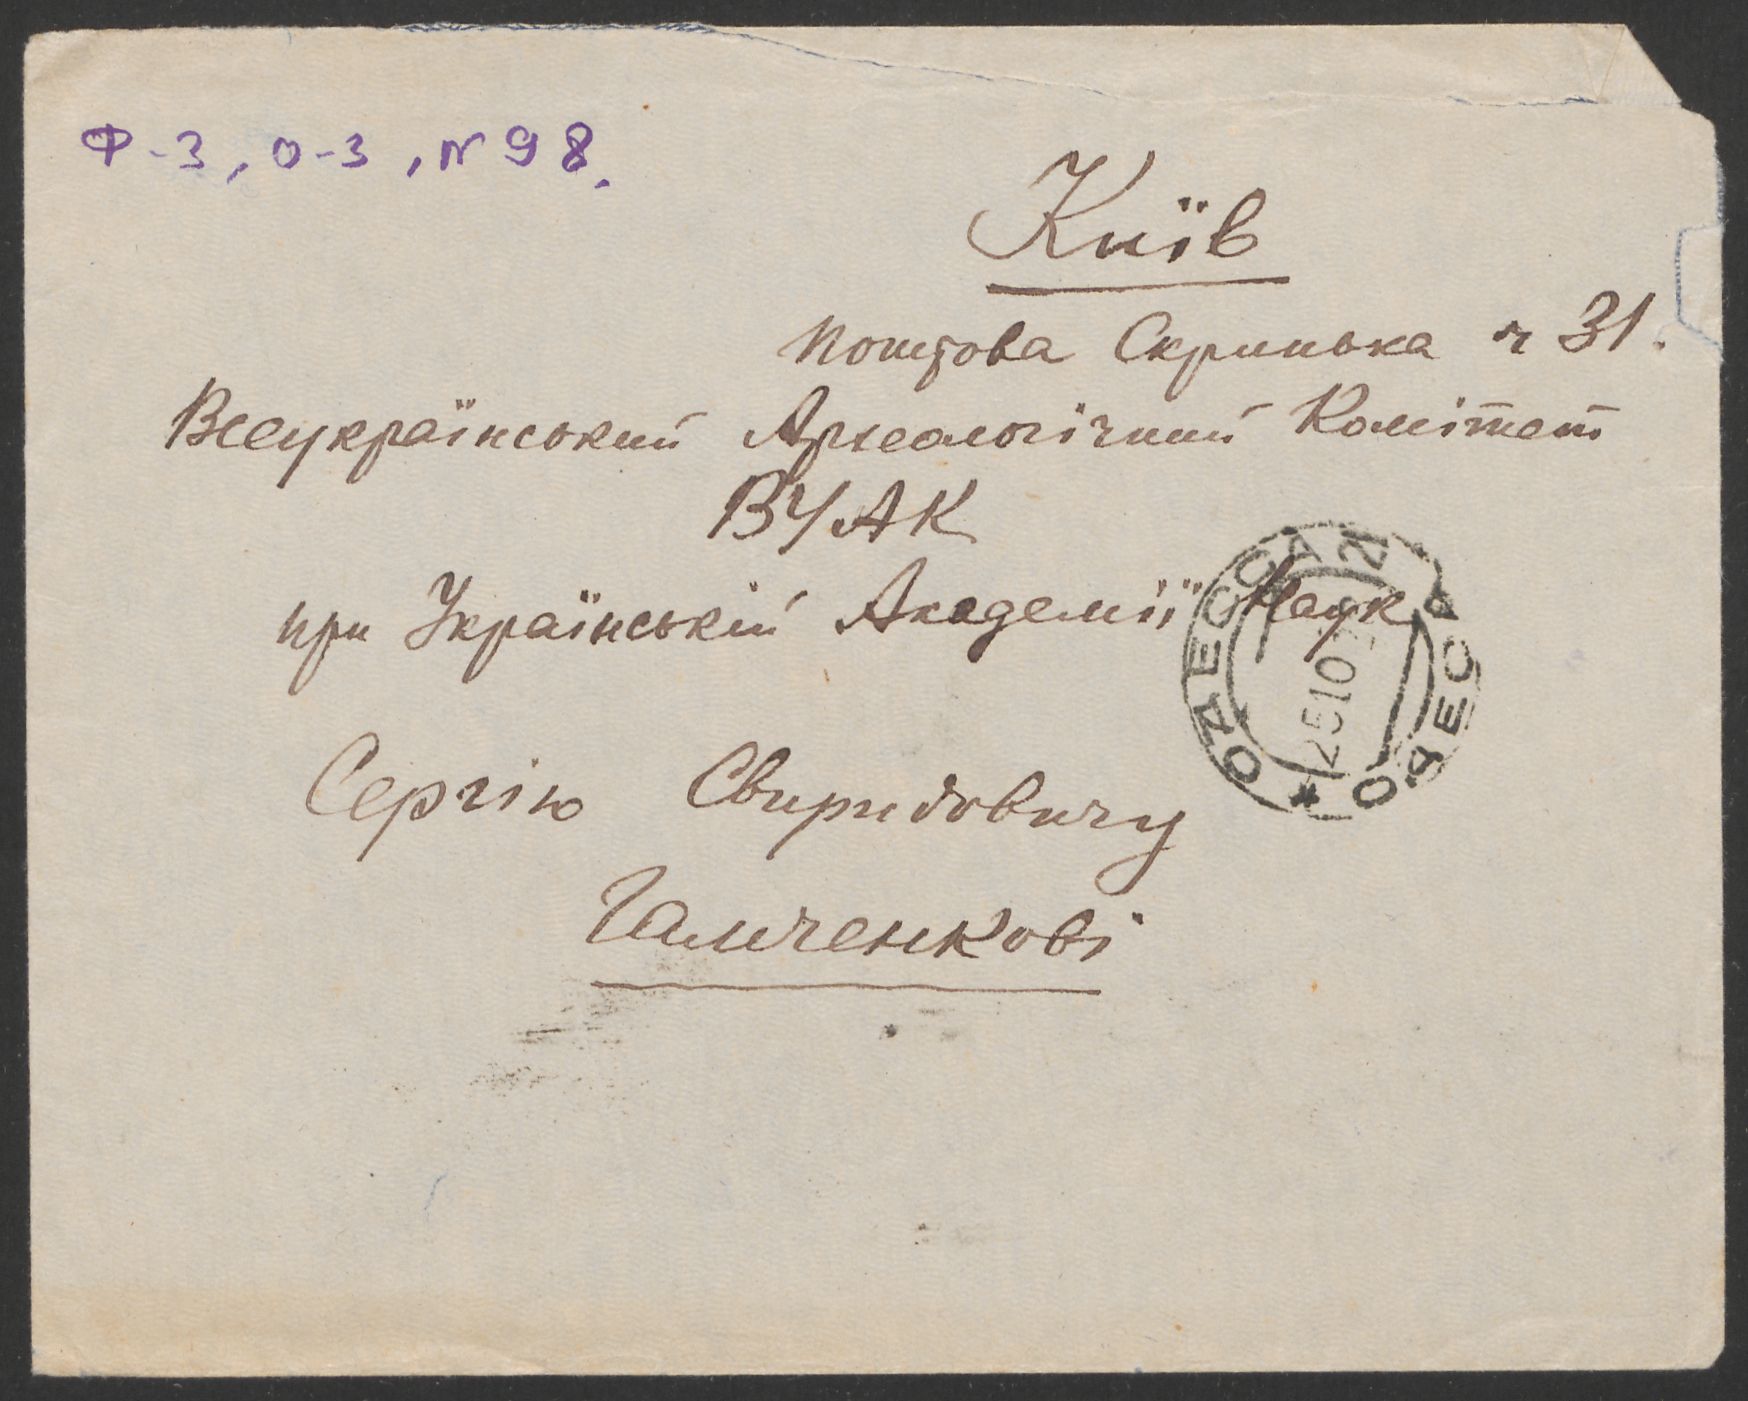 Ф-3, О-3, N 98.
Київ
Поштова Скринька ч 31.
Всеукраїнський Археологічний Комітет
ВУАК
при Українській Академії Наук
ОДЕССА
25 10
ОДЕСА
Сергію Свиридовичу
Гамченкові